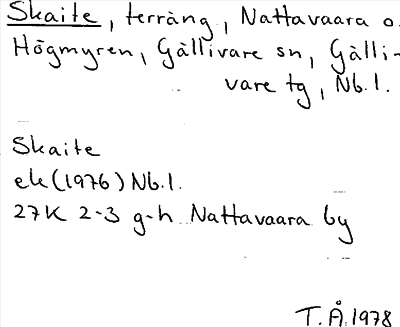 Skaite, terräng, Nattavaara o.
Högmyren, Gällivare sn, Gälli-
vare tg, Nb.l.
Skaite
ek (1976) Nb.l.
27K 2-3 g-h Nattavaara by
T.Å. 1978